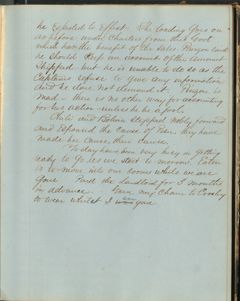 he expected to effect. The loading goes on
as before under Charters from this Govt
which has the benefit of the sales. Pinzon said
he should keep an account of the amount
shipped but he is unable to do so as the
Captains refuse to give any information
and he dare not demand it. Pinzon is
mad - there is no other way of accounting
for his action unless he is a fool.
Chili and Bolivia stepped nobly forward
and espoused the cause of Peru. They have
made her cause, their cause.
To day have been very busy in getting
ready to go as we start to morrow. Eaton
is to move into our rooms while we are
gone. Paid the Landlord for 3 months
in advance. Gave my Chain to Crosby
to wear whilst I am gone